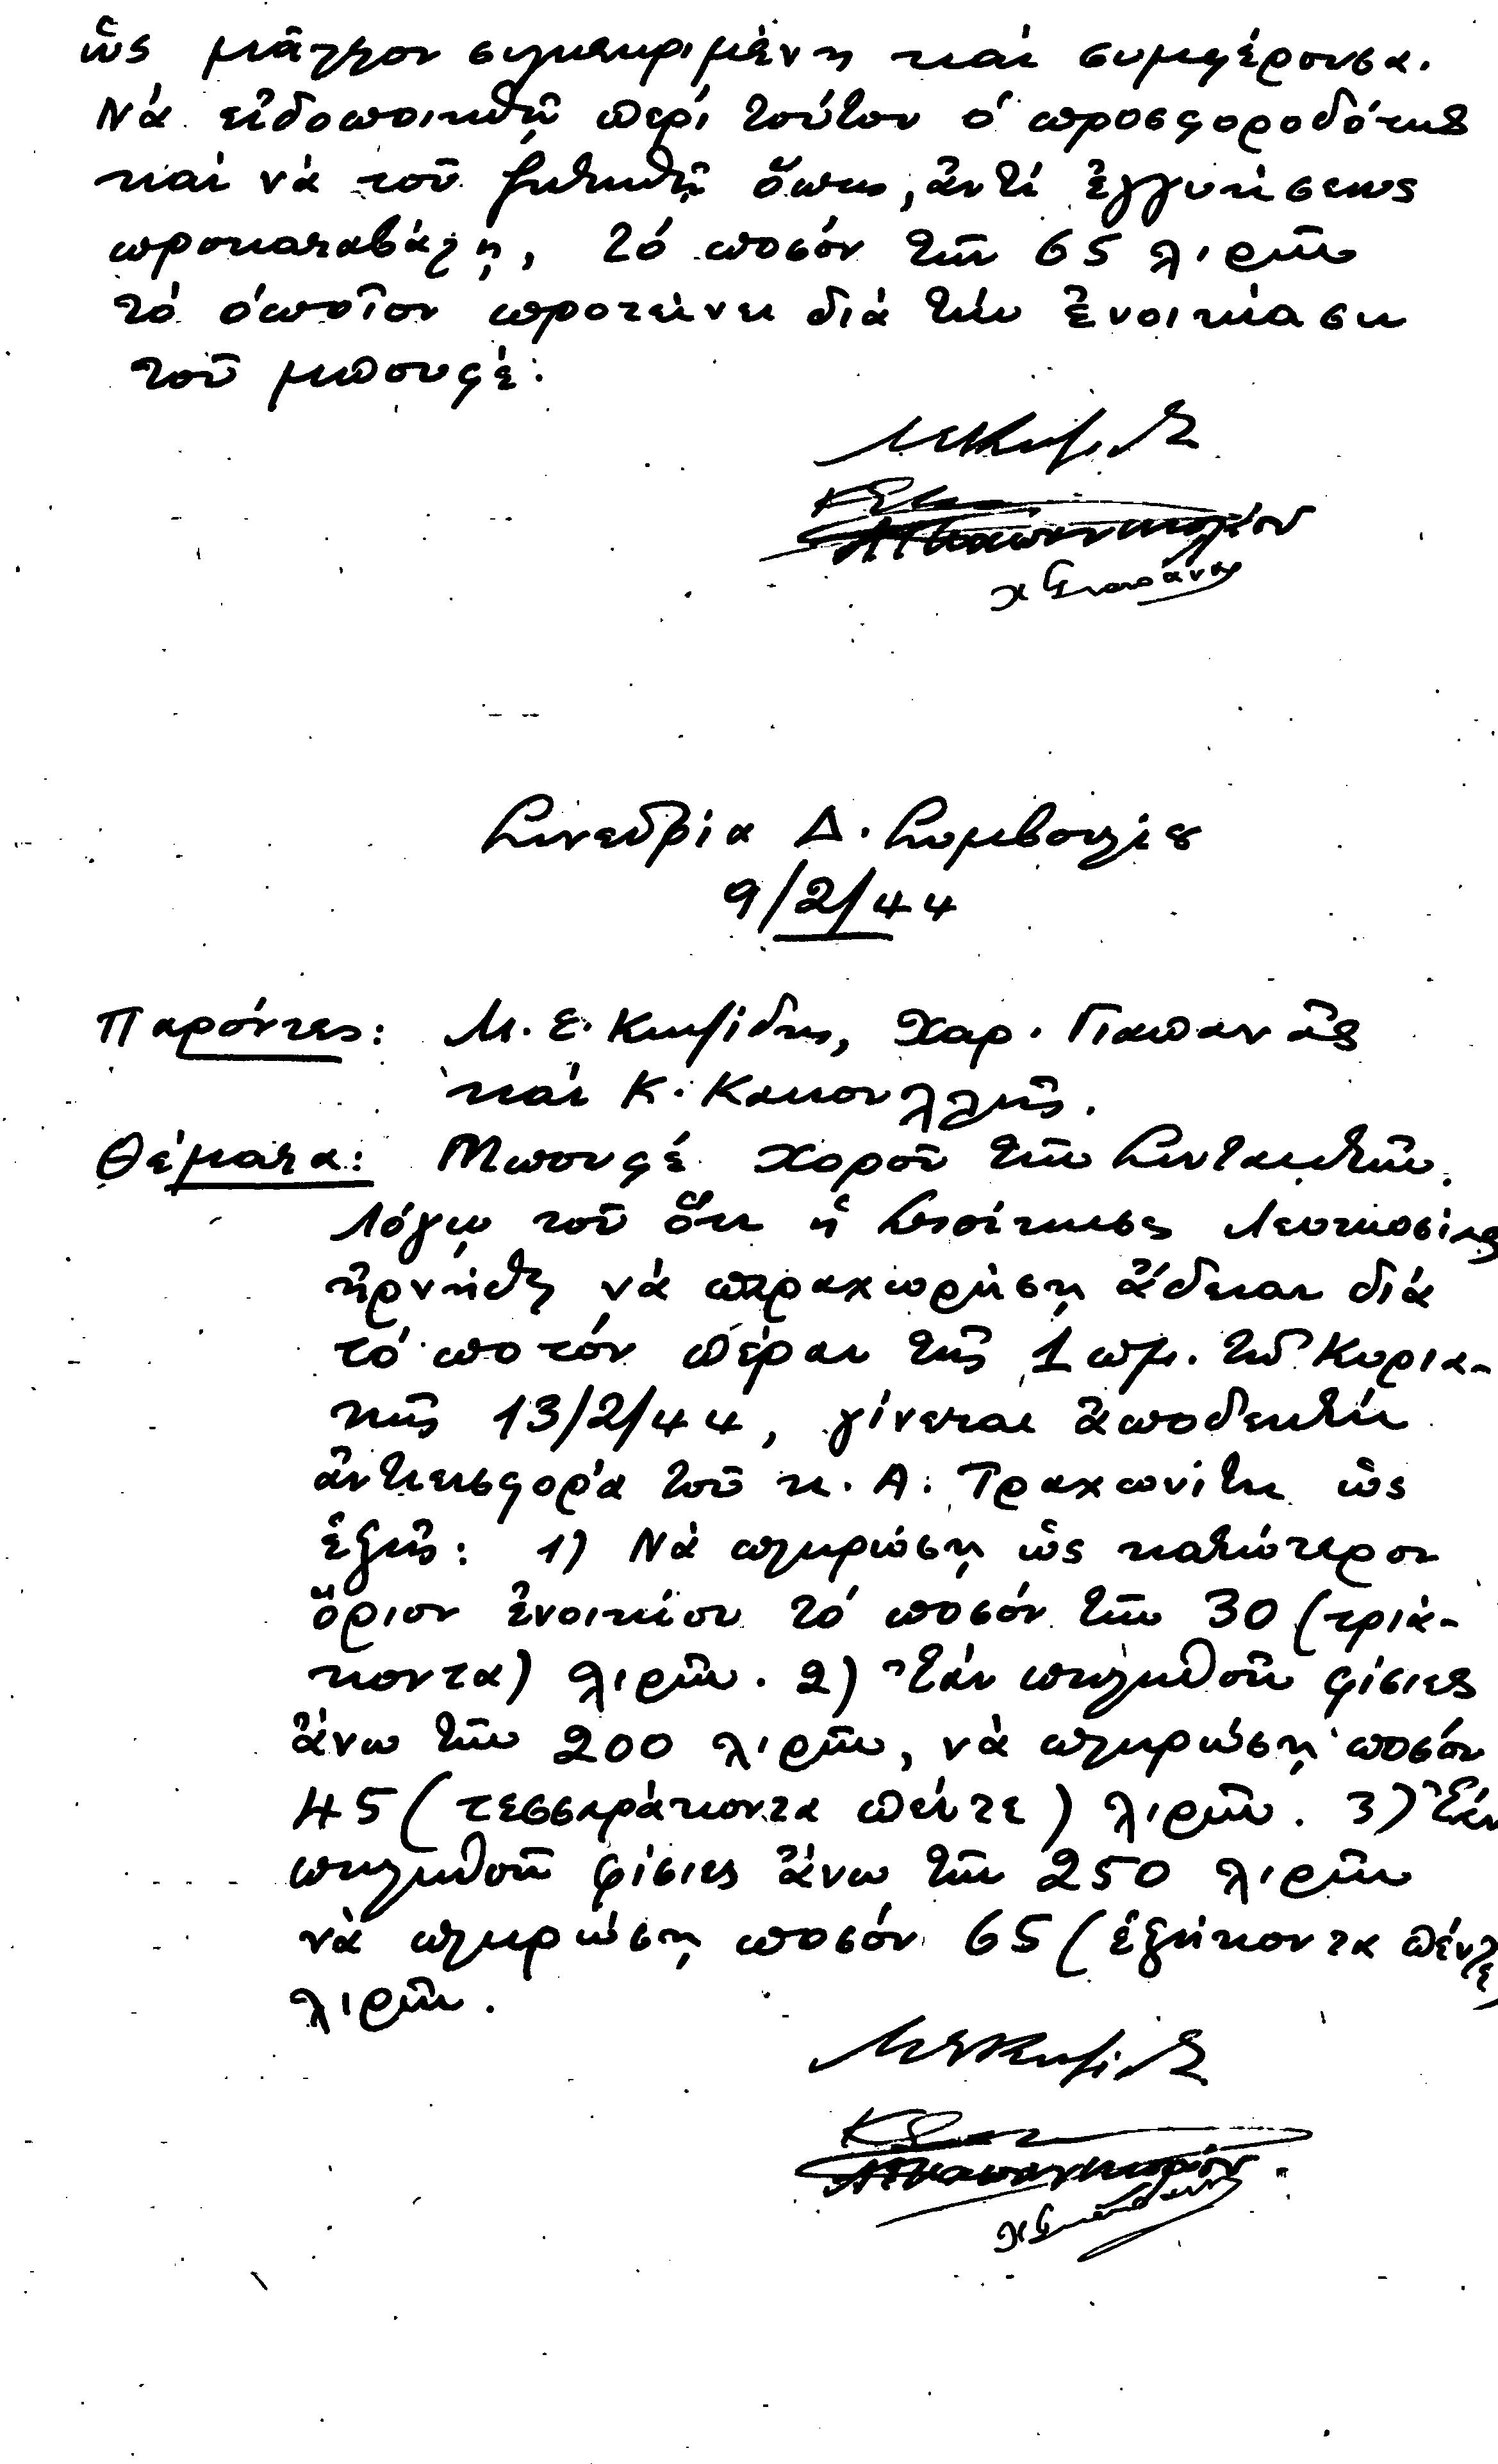 ὡς μᾶλλον συγκεκριμένη καί συμφέρουσα.
Νά εἰδοποιηθῇ περί τούτου ὁ προσφοροδότης
καί νά τοῦ ζητηθῇ ὅπως, ἀντί ἐγγυήσεως
προκαταβάλῃ, τό ποσόν τῶν 65 λιρῶν
τό ὁποῖον προτείνει διά τήν ἐνοικίασιν
τοῦ μπουφέ.
Συνεδρία Δ. Συμβουλίου
9/2/44
Παρόντες: Μ. Ε. Κωζίδης, Χαρ. Γιαπανᾶς
καί Κ. Κακουλλῆς.
Θέματα: Μπουφέ Χοροῦ τῶν Συντακτῶν.
Λόγῳ τοῦ ὅτι ἡ Διοίκησις Λευκωσίας
ἠρνήθη νά παραχωρήσῃ ἄδειαν διά
τό ποτόν πέραν τῆς 1 πμ. τῆς Κυρια-
κῆς 13/2/44, γίνεται ἀποδεκτή
ἀντιεισφορά τοῦ κ. Α. Τραχωνίτη ὡς
ἑξῆς: 1) Νά πληρώσῃ ὡς κατώτερον
ὅριον ἐνοικίου τό ποσόν τῶν 30 (τριά-
κοντα) λιρῶν. 2) Ἐάν πωληθοῦν φίσιες
ἄνω τῶν 200 λιρῶν, νά πληρώσῃ ποσόν
45 (τεσσαράκοντα πέντε) λιρῶν. 3) Ἐάν
πωληθοῦν φίσιες ἄνω τῶν 250 λιρῶν
νά πληρώσῃ ποσόν 65 (ἑξήκοντα πέντε
λιρῶν.